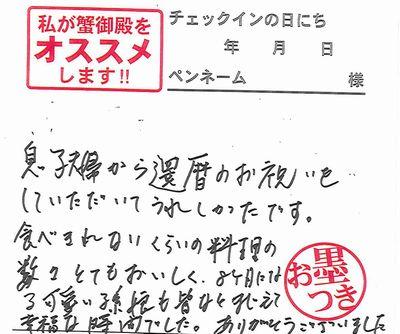 私が蟹御殿を
オススメ
します!!
チェックインの日にち
年 月 日
ペンネーム 様
息子夫婦から還暦のお祝いを
していただいてうれしかたです。
食べきれないくらいの料理の
数々とてもおいしく、8ヶ月にな
る可愛い孫娘も皆なとまじえて
幸福な時間でした。ありがとうございました
お墨つき